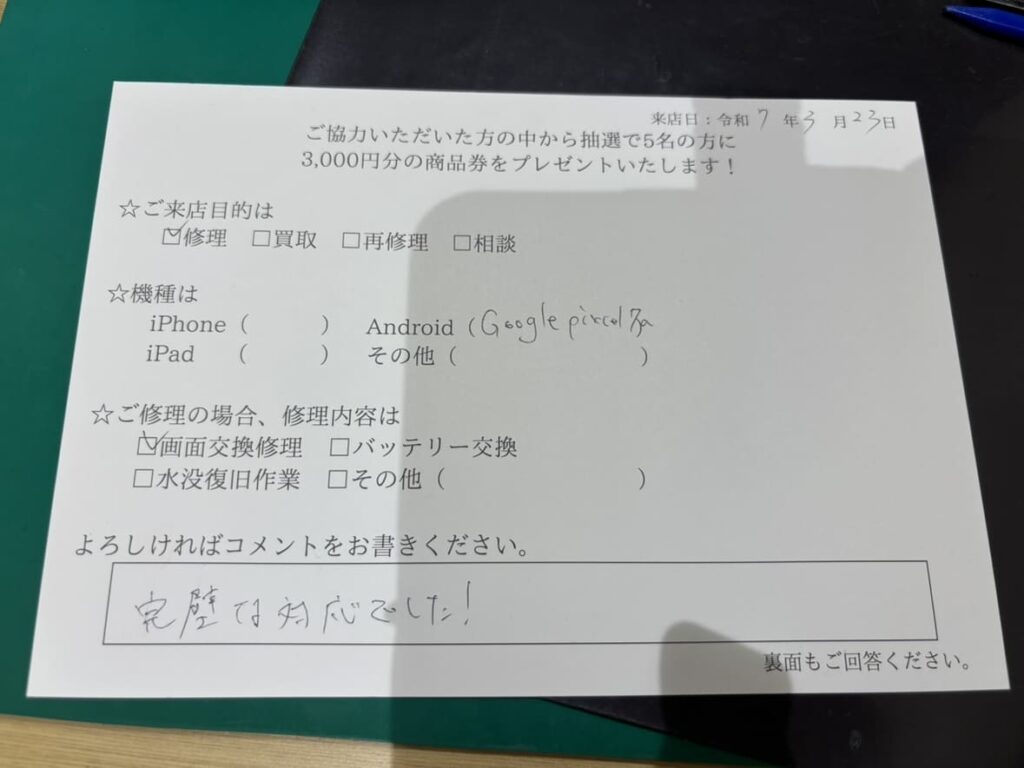 来店日：令和 7 年 3 月 23日
ご協力いただいた方の中から抽選で5名の方に
3,000円分の商品券をプレゼントいたします！
☆ご来店目的は
☑修理 □買取 □再修理 □相談
☆機種は
iPhone（ ） Android（Google pixel 7a
iPad （ ） その他（ ）
☆ご修理の場合、修理内容は
☑画面交換修理 □バッテリー交換
□水没復旧作業 □その他（ ）
よろしければコメントをお書きください。
完璧な対応でした！
裏面もご回答ください。